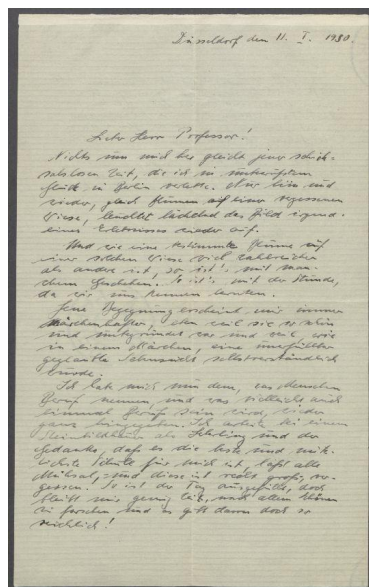 Düsseldorf dem 11. I. 1930.
Lieber Herr Professor!
Nichts um mich her gleicht jener schick-
salslosen Zeit, die ich in
Glück in Berlin verlebte. Nur hin und
wieder, gleich Blumen auf einer vergessenen
Wiese, leuchtet lächelnd das Bild irgend-
eines Erlebnisses wieder auf.
Und wie eine bestimmte Blume auf
einer solchen Wiese viel zahlreicher
als andre ist, so ist's mit man-
chem Geschehen. So ist's mit der Stunde,
da wir uns kennen lernten.
Jene Begegnung erscheint mir immer
märchenhafter, eben weil sie so schön
und unbegründet war und weil wie
in einem Märchen, eine unerfüllbar
geglaubte Sehnsucht selbstverständlich
wurde.
Ich habe mich nun dem, was Menschen
Beruf nennen und was vielleicht auch
einmal Beruf sein wird, wieder
ganz hingegeben. Ich arbeite bei einem
Steinbildhauer als Lehrling und der
Gedanke, daß es die beste und nütz-
lichste Schule für mich ist läßt alle
Mühsal, und diese ist recht groß, ver-
gessen. So ist der Tag ausgefüllt, doch
bleibt mir genug Zeit, nach allem Schönen
zu forschen und es gibt davon doch so
reichlich!